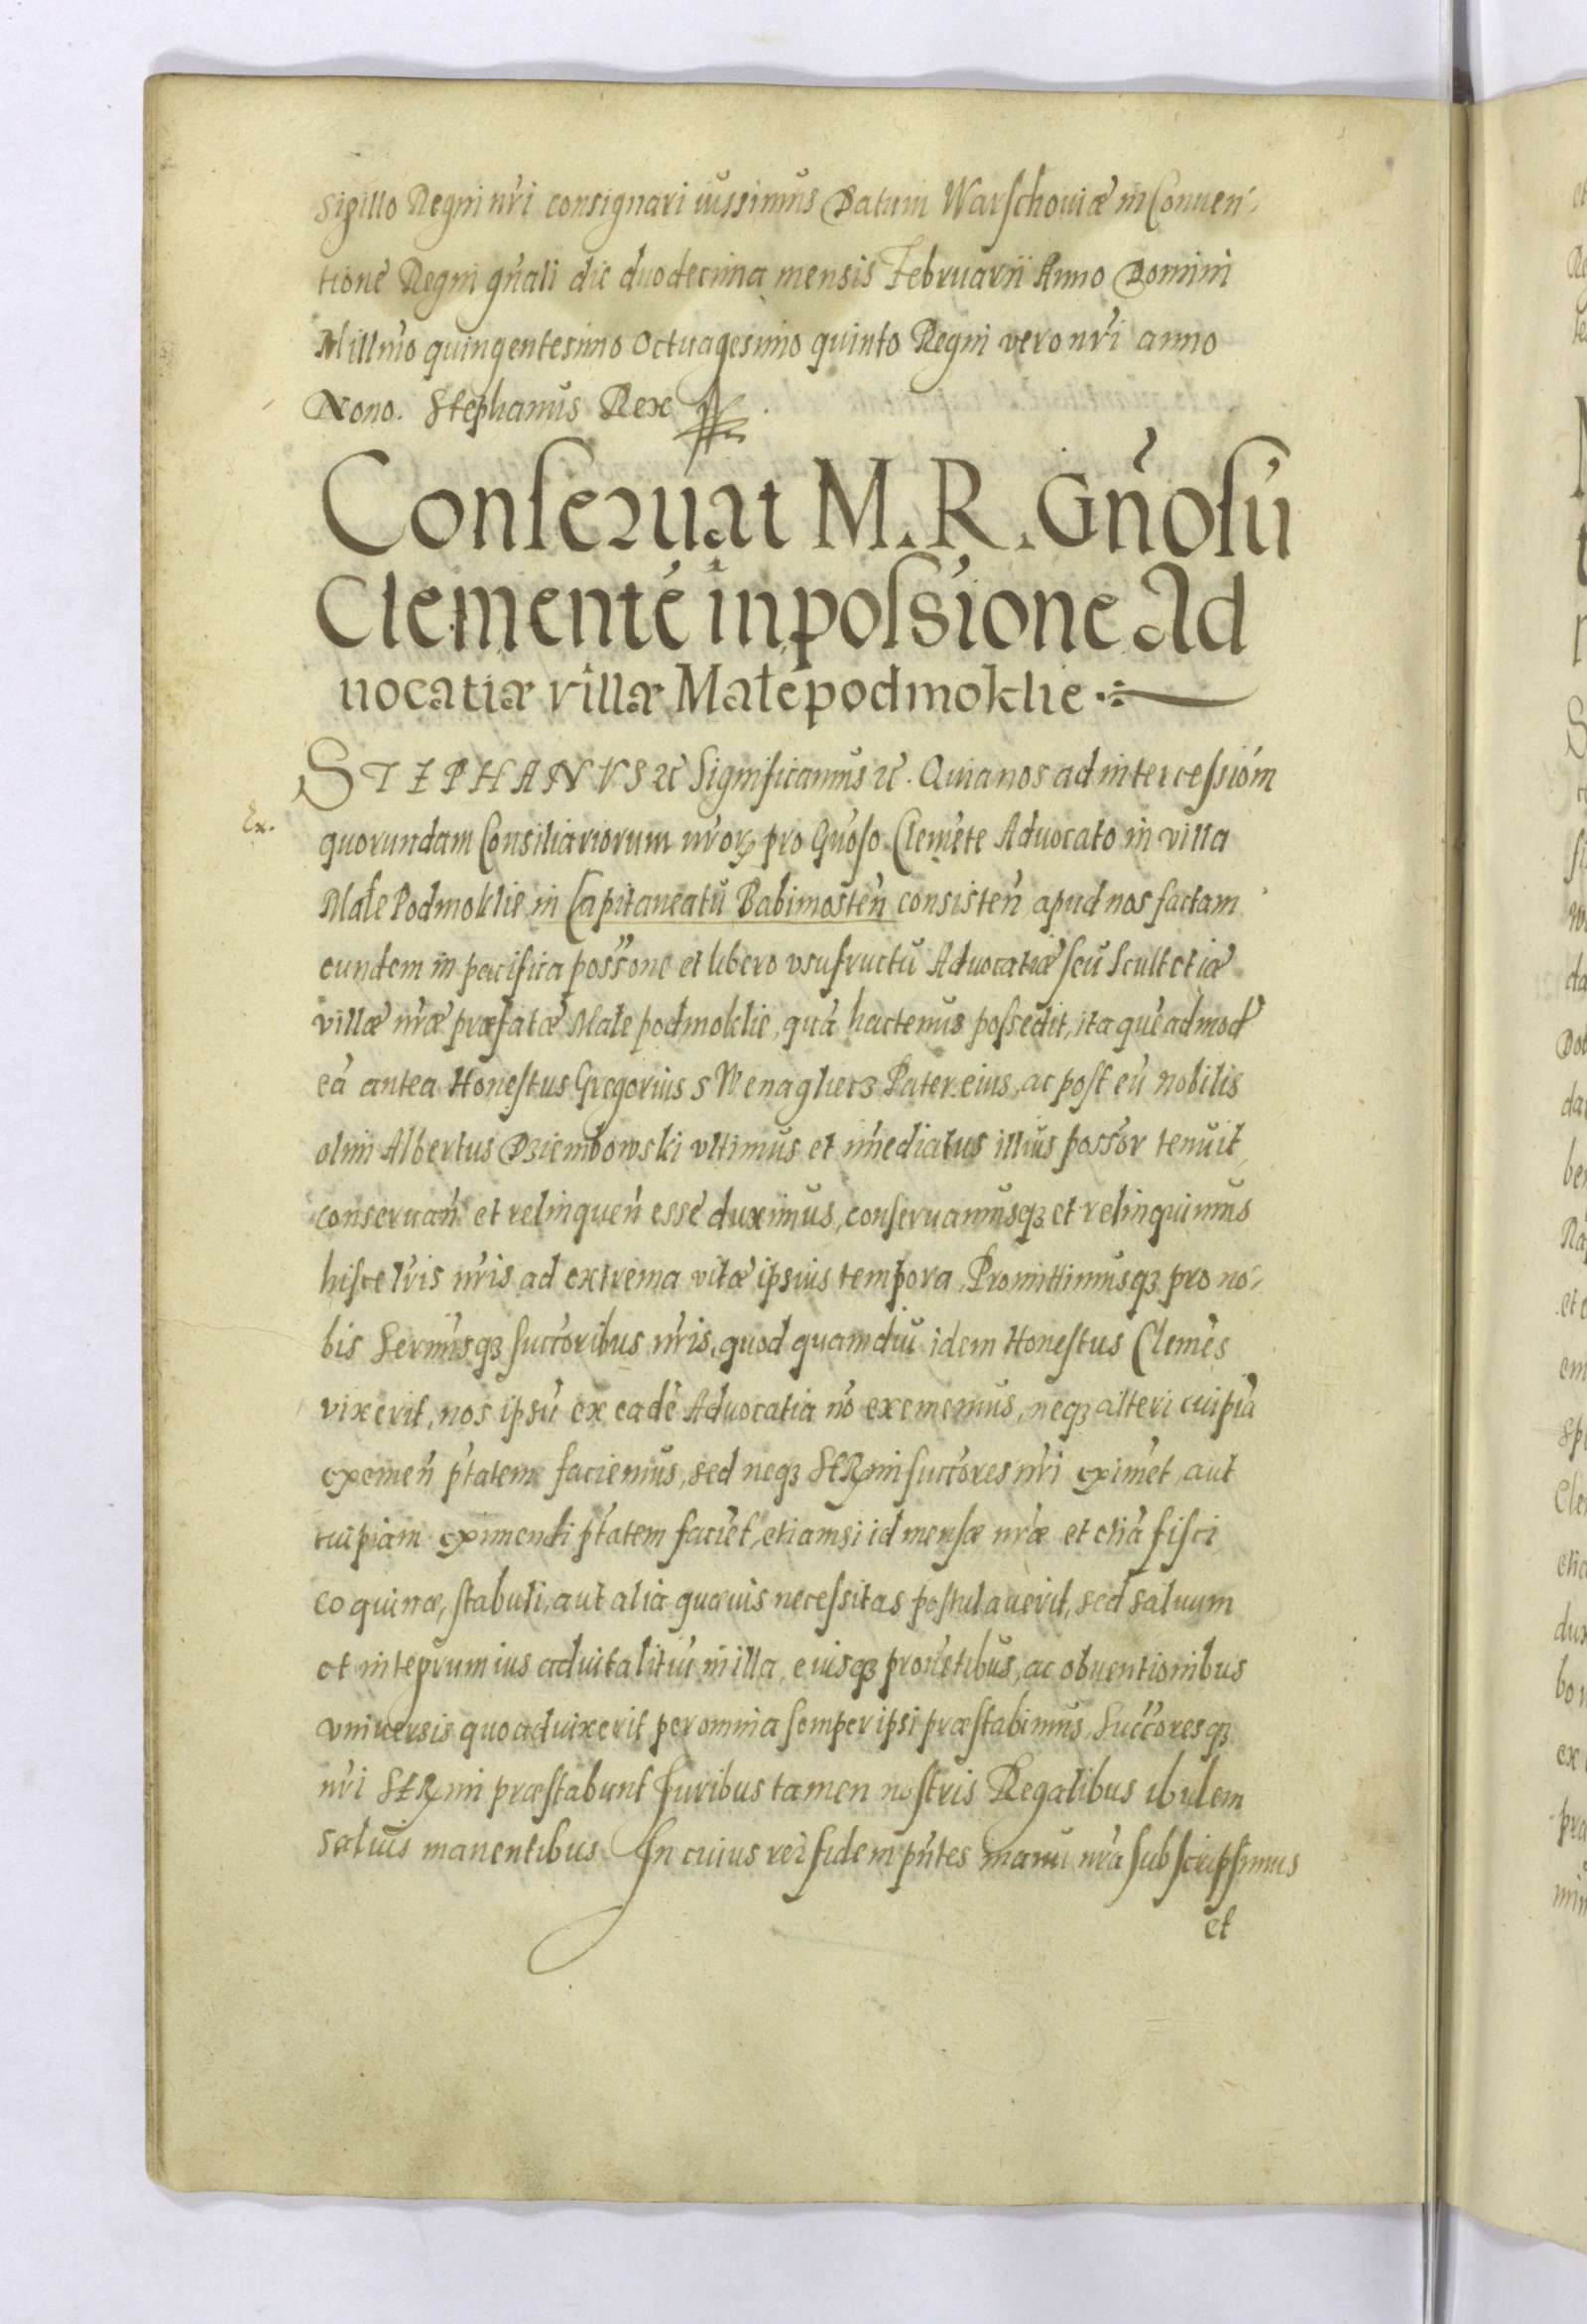 Sigillo Regni nr̃i consignari iussimus Datum Warschoviæ in Conuen-
tione Regni gn̄ali die duodecima mensis Februarii Anno Domini
Millm̃o quingentesimo Octuagesimo quinto Regni vero nr̃i anno
Nono. Stephanus Rex
Conseruat M.R. Gñosū
Clementē in poss̃ione Ad
uocatiæ villæ Małe podmoklie
STEPHANVS &c̃ Significamus &c̃. Quia nos ad intercessiom̃
Ex.
quorundam Consiliariorum nr̃oꝝ pro Gñoso Clemēte Aduocato in villa
Małe Podmoklie in Capitaneatū Babimosteñ consisteñ apud nos factam
eundem in pacifica poss̃one et libero vsufructu Aduocatiæ seu Scultetiæ
villæ nr̃æ præfatæ Małe podmoklie, quā hactenus possedit, ita quēadmod̃
eā antea Honestus Gregorius S Wenaglierz Pater eius, ac post eū nobilis
olim Albertus Dziembowski vltimus et im̃ediatus illius poss̃or tenuit,
conseruañ et relinqueñ esse duximus, conseruamusqꝫ et relinquimus
hisce lr̃is nr̃is ad extrema vitæ ipsius tempora. Promittimusqꝫ pro no-
bis Serm̃isqꝫ succ̃oribus nr̃is, quod quamdiu idem Honestus Clemēs
vixerit, nos ipsū ex eadē Aduocatia nō exememus, neqꝫ alteri cuipiā
eximeñ p̃tatem faciemus, sed neqꝫ Serm̃i succ̃ores nr̃i eximēt, aut
cuipiam eximendi p̃tatem faciēt, etiamsi id mensæ nr̃æ et etiā fisci,
coquinæ, stabuli, aut alia quæuis necessitas postulauerit, sed saluum
et integrum ius aduitalitiū in illa, eiusqꝫ prouētibus, ac obuentionibus
vniuersis quoad vixerit per omnia semper ipsi præstabimus, Succ̃oresqꝫ
nr̃i Serm̃i præstabunt Juribus tamen nostris Regalibus ibidem
saluis manentibus. In cuius rei fidem pñtes manu nr̃a subscripsimus
et